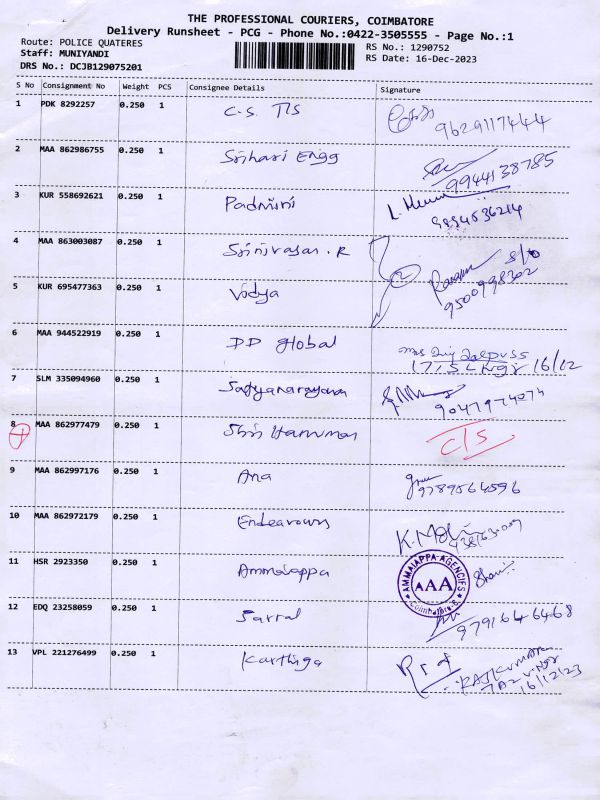 THE PROFESSIONAL COURIERS, COIMBATORE
Delivery Runsheet - PCG - Phone No.:0422-3505555 - Page No.:1
Route: POLICE QUATERES
RS No.: 1290752
Staff: MUNIYANDI
RS Date: 16-Dec-2023
DRS No.: DCJB129075201
S No Consignment No Weight PCS Consignee Details Signature
1 PDK 8292257 0.250 1 C.S. TLS
9629117444
2 MAA 862986755 0.250 1 Srihari Engg
9944138785
3 KUR 558692621 0.250 1 Padmini
9894536214
4 MAA 863003087 0.250 1 Srinivasan.R
S/o
9500998302
5 KUR 695477363 0.250 1 Vidya
6 MAA 944522919 0.250 1 DD Global
16/12
7 SLM 335094960 0.250 1 Satyanarayana
9047974074
8 MAA 862977479 0.250 1 Shri Hanuman C/S
9 MAA 862997176 0.250 1 Ana
9789564596
10 MAA 862972179 0.250 1 Endeavours
11 HSR 2923350 0.250 1 Ammaiappa
AMMAIAPPA AGENCIES
AAA
12 EDQ 23258059 0.250 1 Sarral
9791646468
13 VPL 221276499 0.250 1 Karthiga
RAJKUMAR
16/12/23